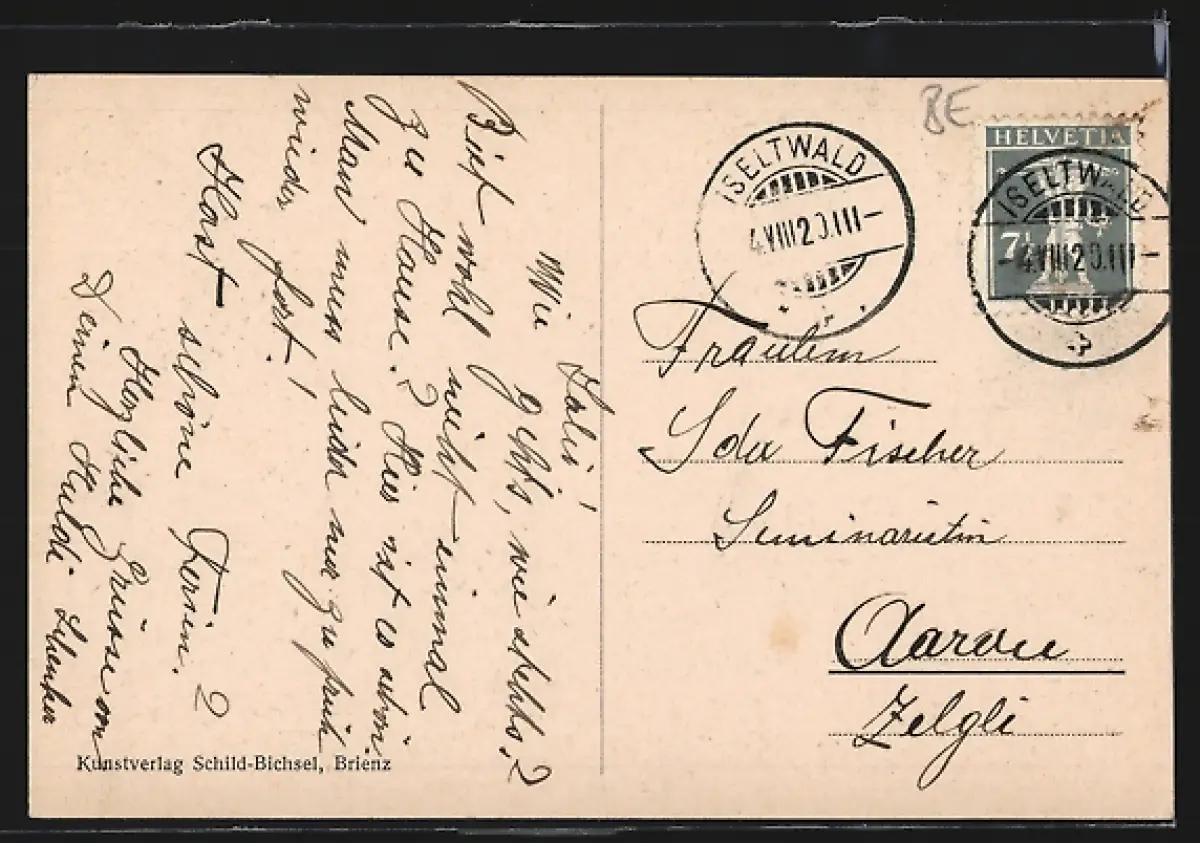 Salü!
Wie geht's, wie stehts?
Bist wohl nicht einmal
zu Hause? Hier ist es schön.
Man muss leider nur zu früh
wieder fort!
Hast schöne Ferien?
Herzliche Grüsse von
Deinem Huldi Schenker
Kunstverlag Schild-Bichsel, Brienz
BE
HELVETIA
7½
ISELTWALD
4.VIII 20.III–
ISELTWALD
4.VIII 20.III–
Fräulein
Ida Fischer
Seminaristin
Aarau
Zelgli